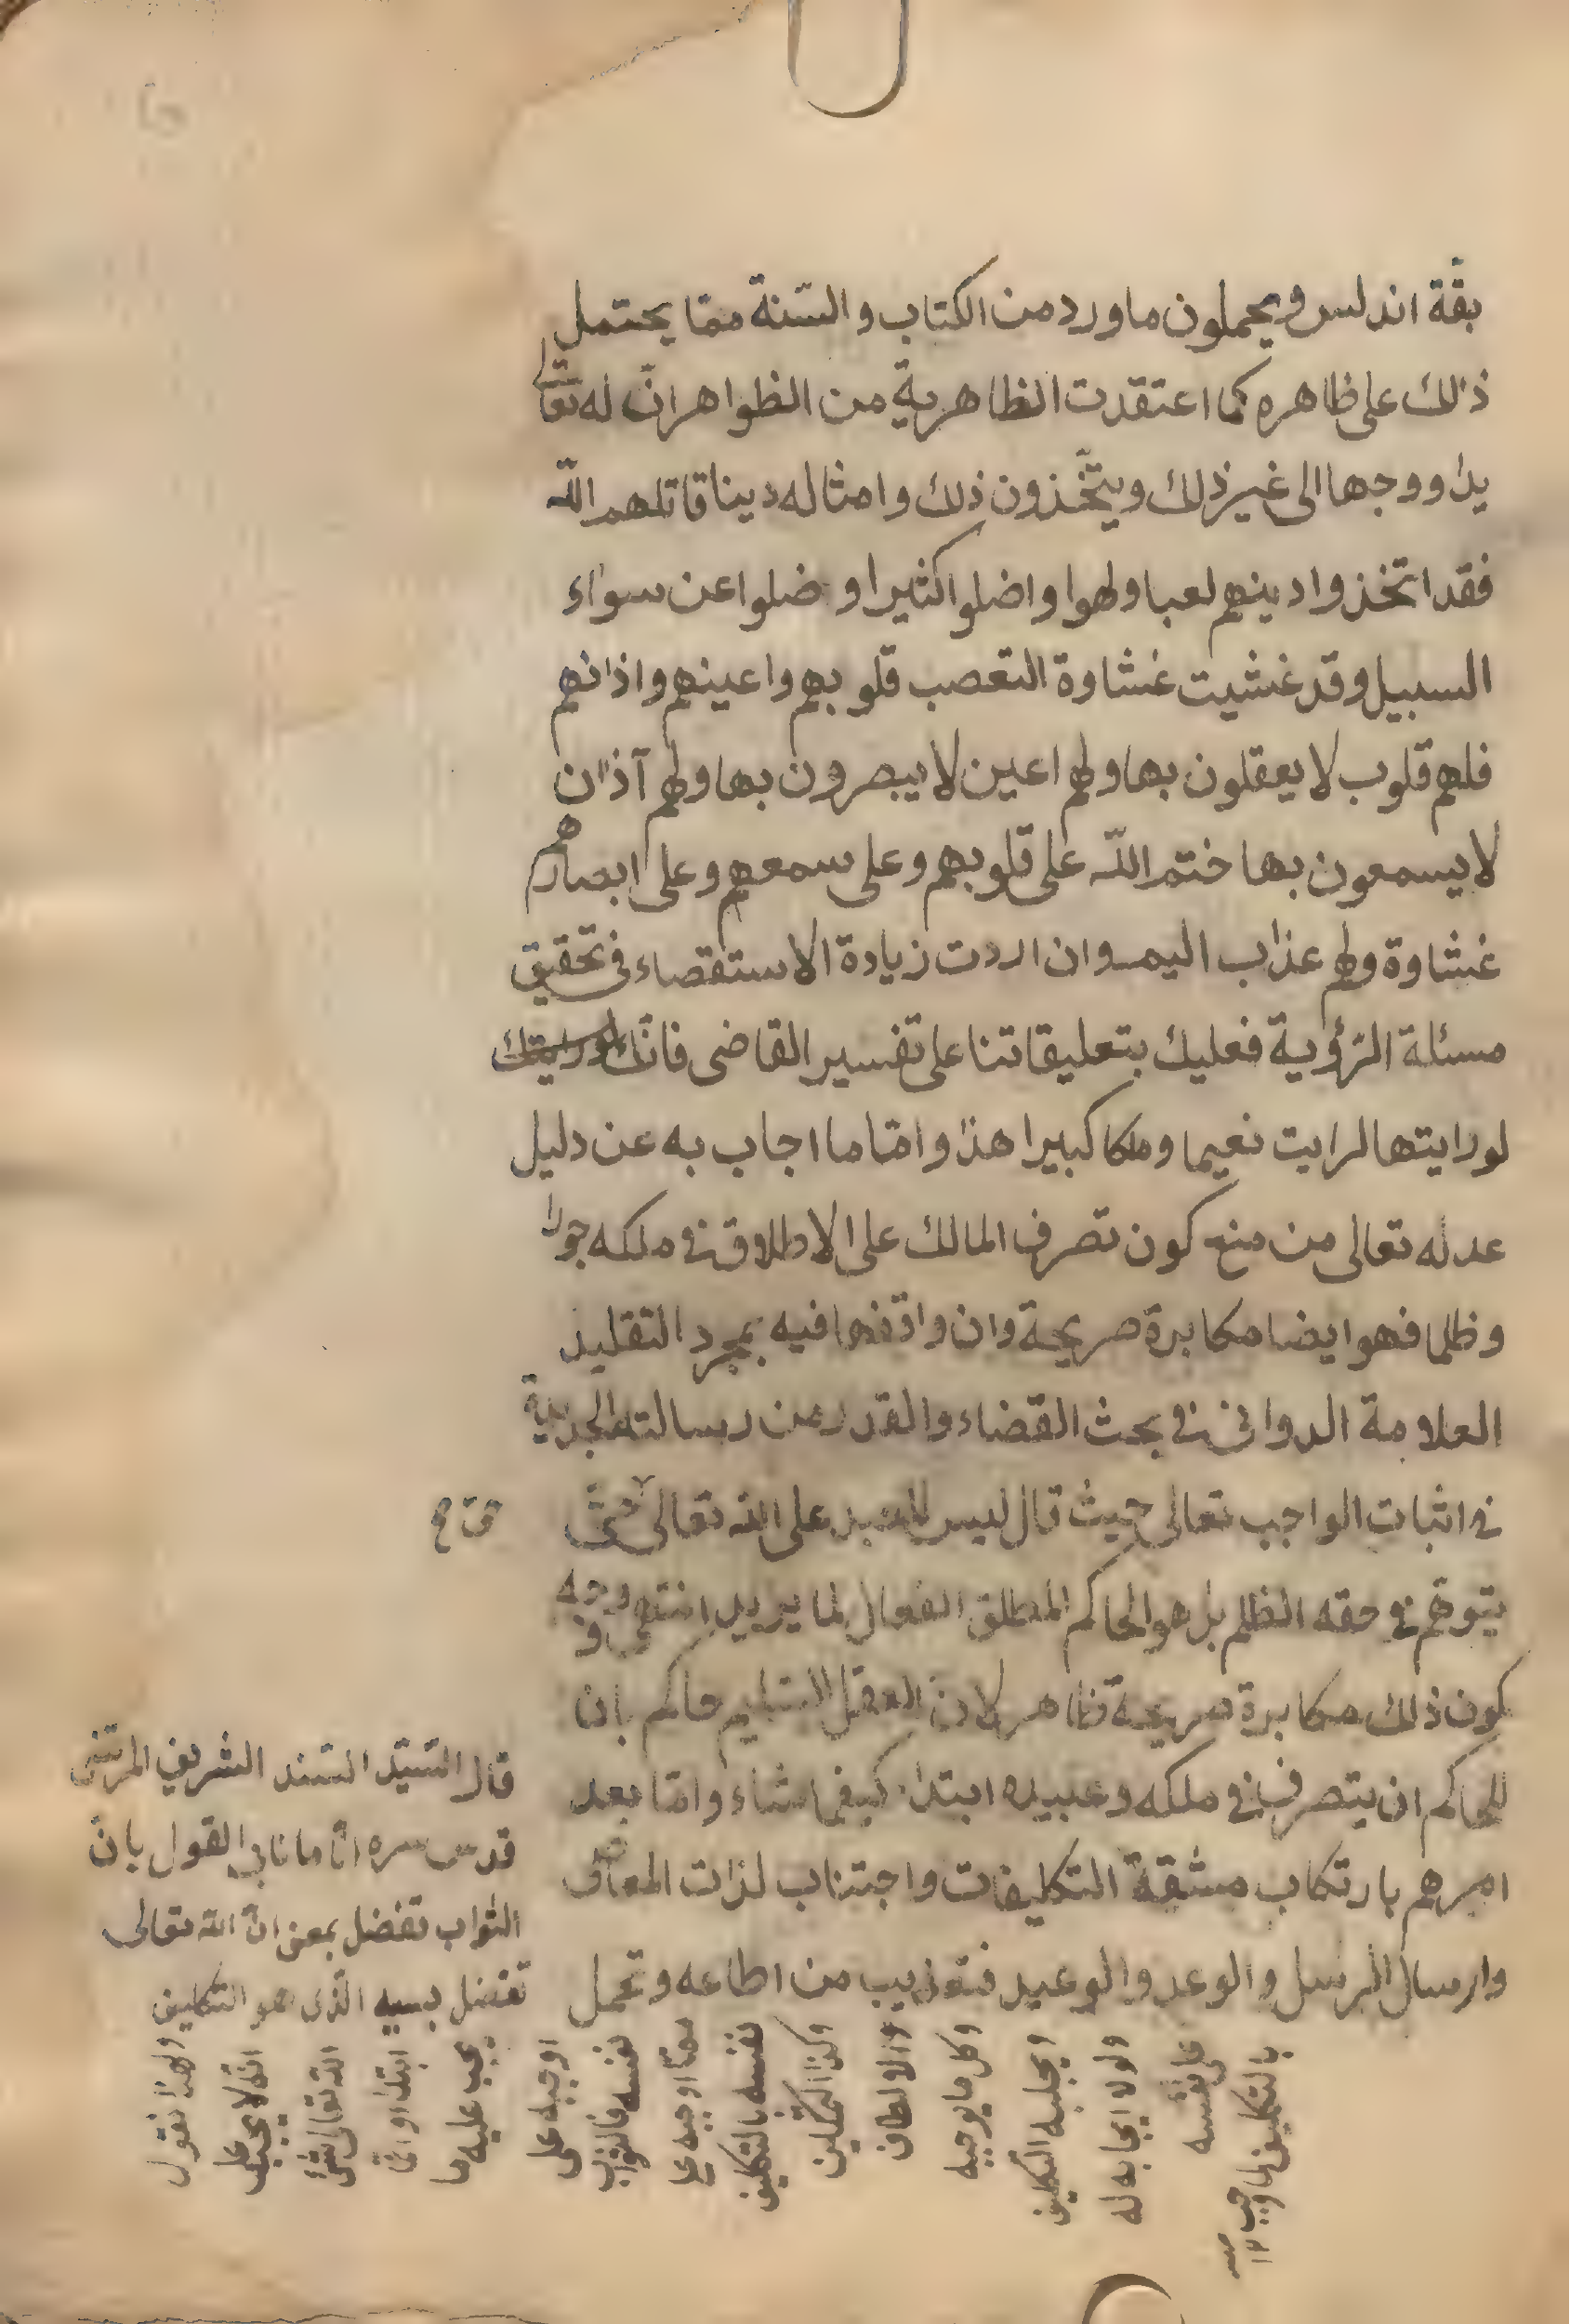 بقّة اندلس ويحملون ما ورد من الكتاب والسّنة ممّا يحتمل
ذلك على ظاهره كما اعتقدت الظاهرية من الظواهر انّ له تعالى
يدا ووجها الى غير ذلك ويتّخذون ذلك وامثاله دينا قاتلهم اللّه
فقد اتخذوا دينهم لعبا ولهوا واضلوا كثيرا وضلوا عن سواء
السبيل وقد غشيت غشاوة التعصب قلوبهم واعينهم واذانهم
فلهم قلوب لا يعقلون بها ولهم اعين لا يبصرون بها ولهم آذان
لا يسمعون بها ختم اللّه على قلوبهم وعلى سمعهم وعلى ابصارهم
غشاوة ولهم عذاب اليم وان اردت زيادة الاستقصاء فى تحقيق
مسئلة الرّؤية فعليك بتعليقاتنا على تفسير القاضى فانّك
لو رايتها لرايت نعيما وملكا كبيرا هذا وامّا ما اجاب به عن دليل
عدله تعالى من منع كون تصرف المالك على الاطلاق فى ملكه جورا
وظلما فهو ايضا مكابرة صريحة وان وافقها فيه بمجرد التقليد
العلامة الدوانى فى بحث القضاء والقدر من رسالته الجديدة
فى اثبات الواجب تعالى حيث قال ليس للعبد على اللّه تعالى حتّى
حقّ صح
يتوهّم فى حقه الظلم بل هو الحاكم المطلق الفعال لما يريد انتهى ووجه
كون ذلك مكابرة صريحة ظاهر لانّ العقل السّليم حاكم بان
للحاكم ان يتصرف فى ملكه وعبيده ابتداء كيفما شاء وامّا بعد
امرهم بارتكاب مشقة التكليفات واجتناب لذات المعاصى
وارسال الرسل والوعد والوعيد فتعذيب من اطاعه وتحمل
قال السّيّد السّند الشريف المرتضى
قدس سره انّا ما نابى القول بانّ
الثواب تفضل بمعنى انّ اللّه تعالى
تفضل بسببه الّذى هو التكليف
ولهذا نقول
انّه لا يجب على
اللّه تعالى شئ
ابتداء وانّما
يجب عليه ما
اوجبه على
نفسه فالثواب
ممّا اوجبه على
نفسه بالتكليف
وكذا التمكين
والالطاف
وكل ما يوجبه
ويجلبه التكليف
ولولا ايجابه له
على نفسه
بالتكليف لما وجب
١٢